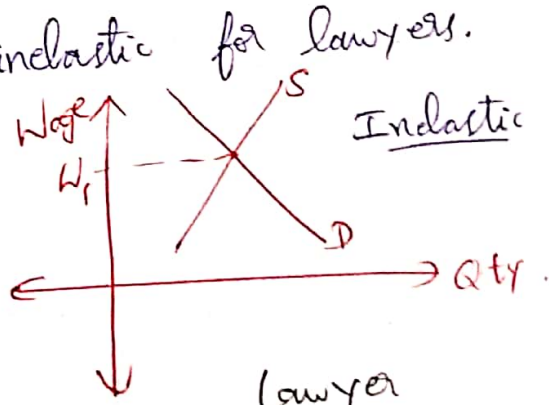 inelastic for lawyers.
S
Wage
Inelastic
W₁
D
Qty.
lawyer